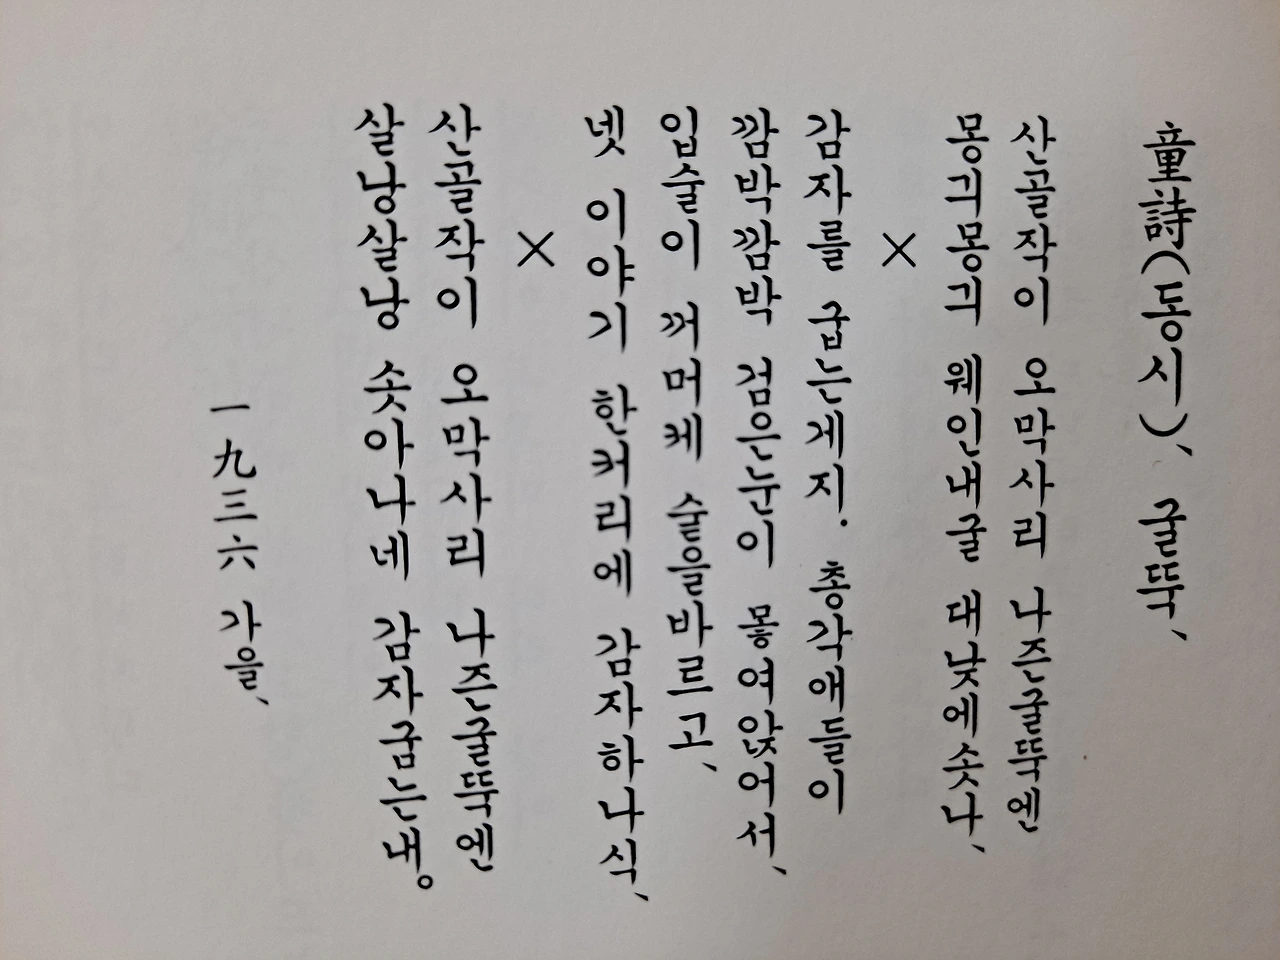 童詩(동시)、 굴뚝、
산골작이 오막사리 나즌굴뚝엔
몽긔몽긔 웨인내굴 대낮에솟나、
×
감자를 굽는게지. 총각애들이
깜박깜박 검은눈이 몽여앉어서、
입술이 꺼머케 숱을바르고、
넷 이야기 한커리에 감자하나식、
×
산골작이 오막사리 나즌굴뚝엔
살낭살낭 솟아나네 감자굽는내。
一九三六 가을、